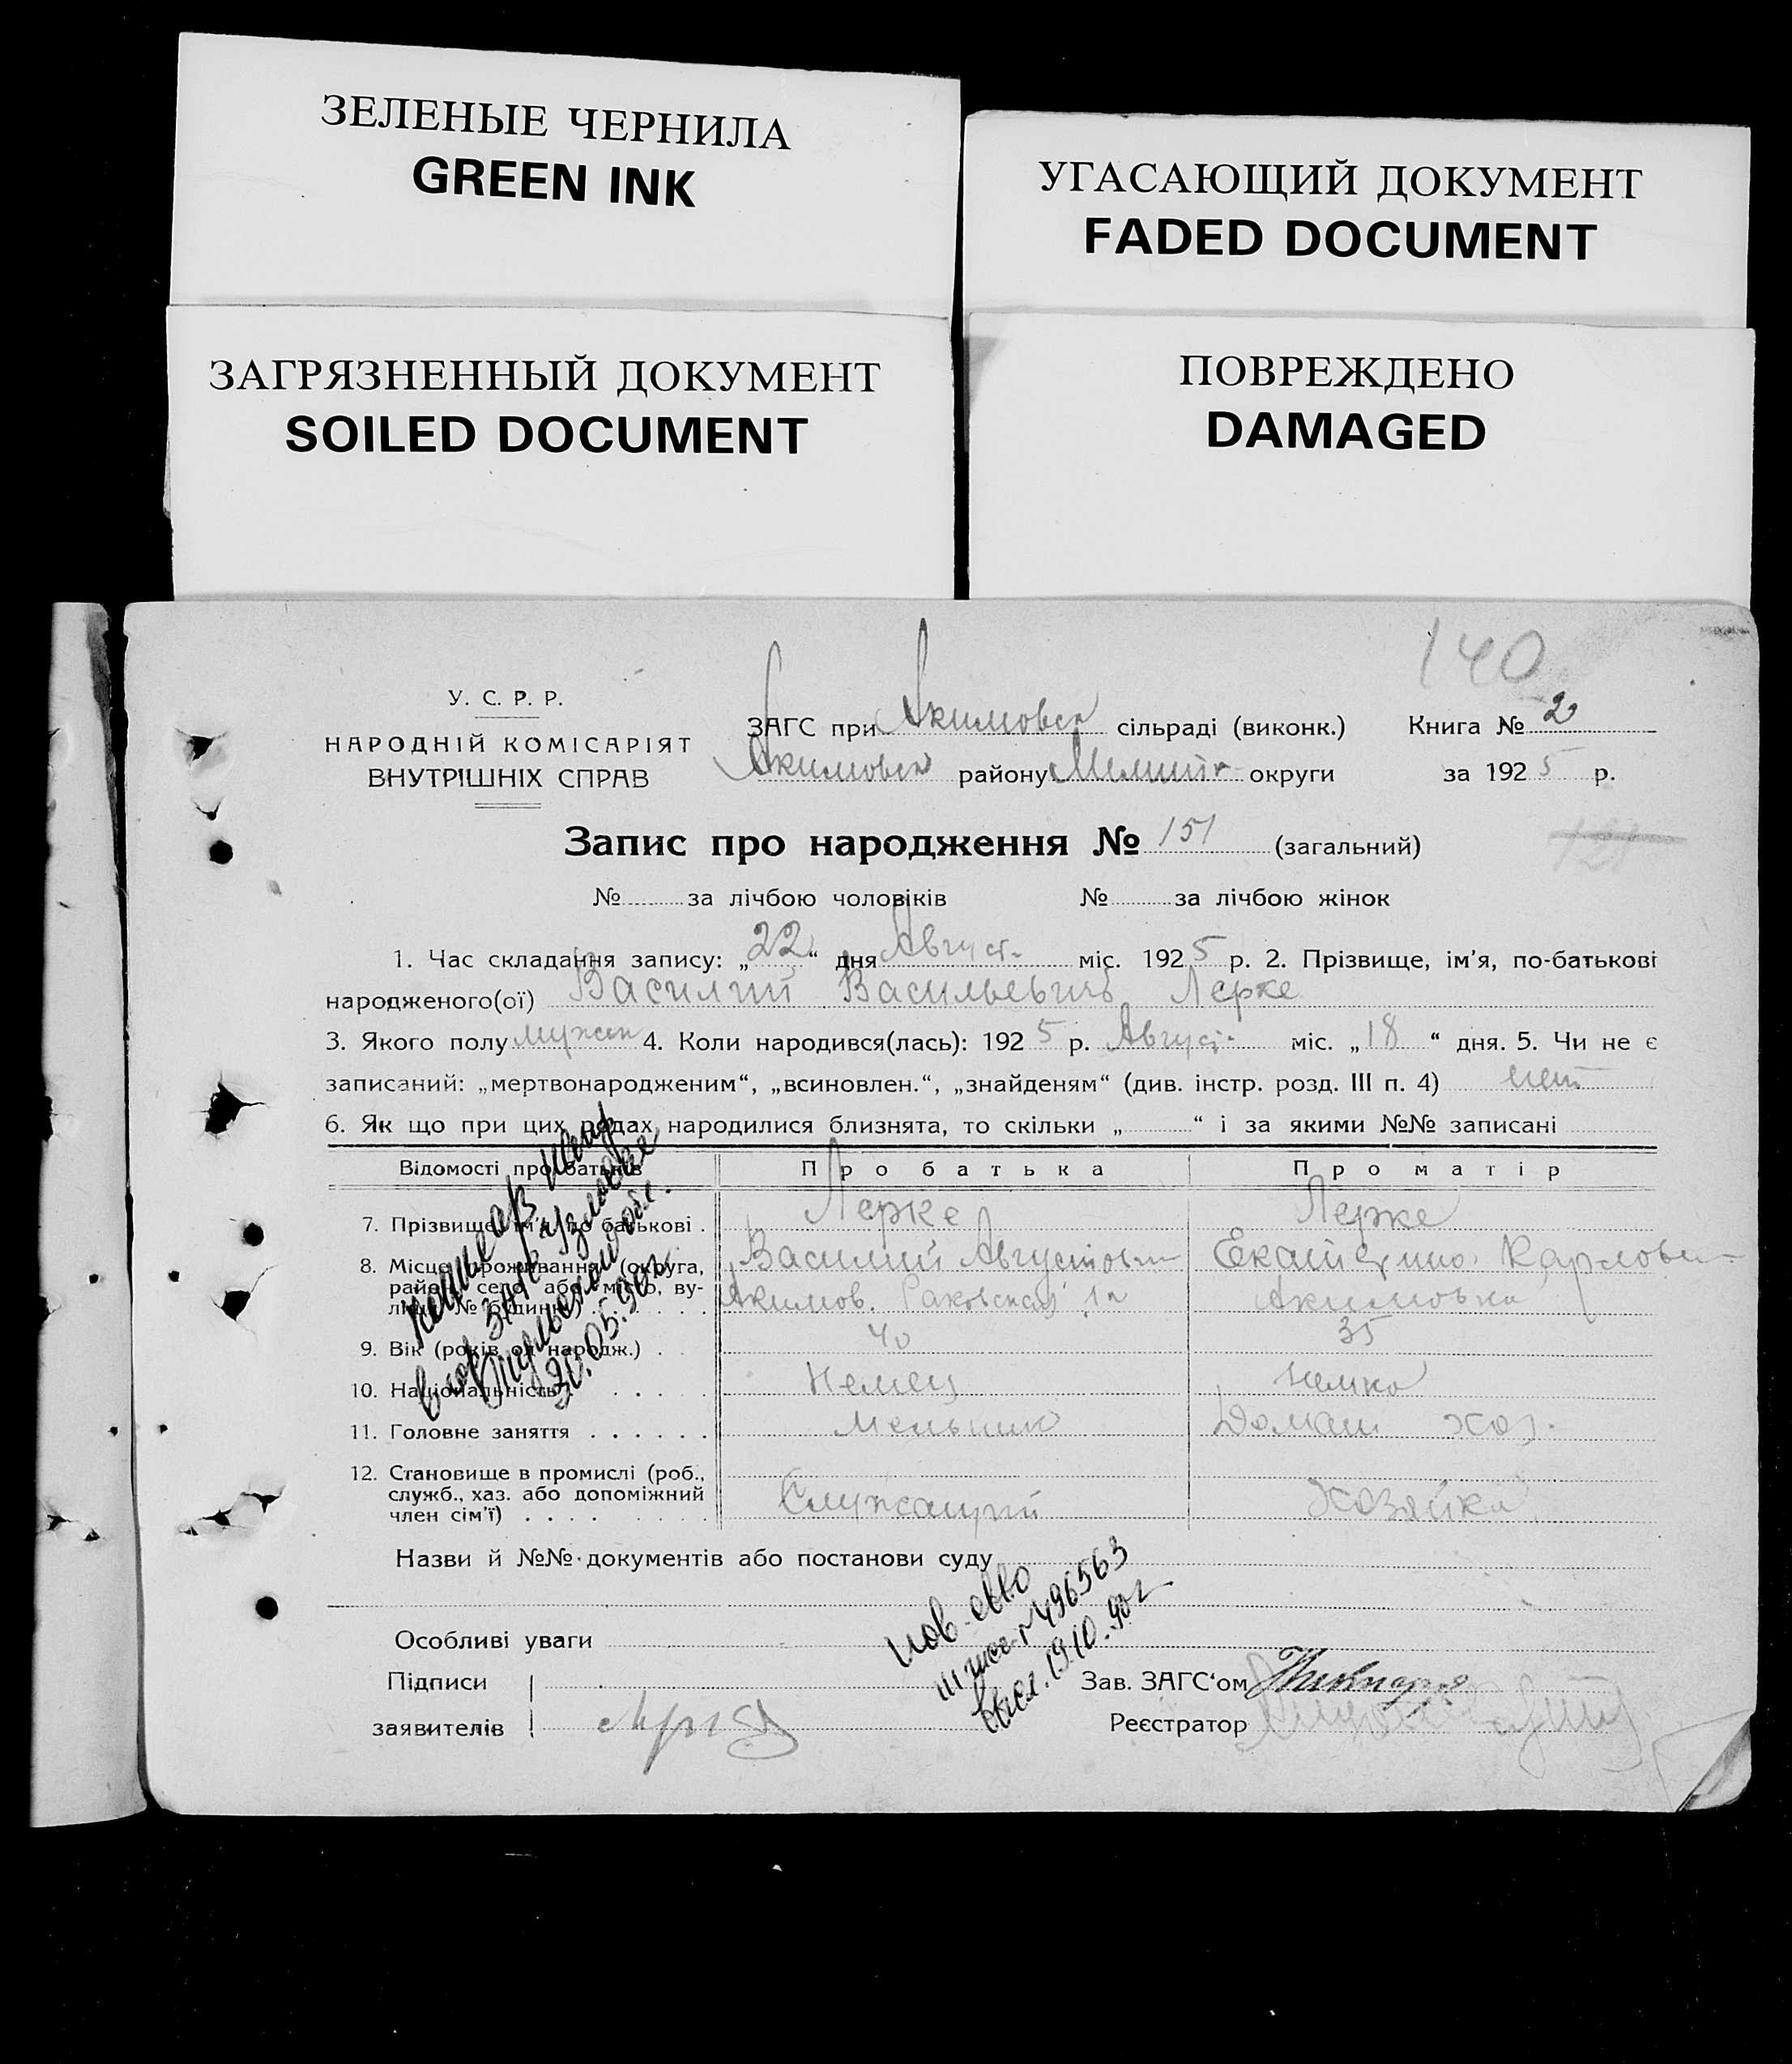 ЗЕЛЕНЫЕ ЧЕРНИЛА
GREEN INK
УГАСАЮЩИЙ ДОКУМЕНТ
FADED DOCUMENT
ЗАГРЯЗНЕННЫЙ ДОКУМЕНТ
SOILED DOCUMENT
ПОВРЕЖДЕНО
DAMAGED
140
У. С. Р. Р.
НАРОДНІЙ КОМІСАРІЯТ
ВНУТРІШНІХ СПРАВ
ЗАГС при Акимовск сільраді (виконк.) Книга № 2
Акимовск району Мелит округи за 1925 р.
Запис про народження № 151 (загальний)
121
№ за лічбою чоловіків № за лічбою жінок
1. Час складання запису: „22“ дня Август. міс. 1925 р. 2. Прізвище, ім'я, по-батькові
народженого(ої) Василий Васильевич Лерке
3. Якого полу мужск 4. Коли народився(лась): 1925 р. Август. міс. „18“ дня. 5. Чи не є
записаний: „мертвонародженим“, „всиновлен.“, „знайденям“ (див. інстр. розд. III п. 4) нет
6. Як що при цих родах народилися близнята, то скільки „ “ і за якими №№ записані
Відомості про батьків Про батька Про матір
7. Прізвище, ім'я, по батькові . Лерке Лерке
Василий Августов Екатерина Карлов
8. Місце проживання (округа, район, село або місто, вулиця, № будинку) Акимов. Раковская 12 Акимовка
9. Вік (років од народж.) . 40 35
10. Національність . . . . Немец немка
11. Головне заняття . . . . . . Мельник Домаш хоз.
12. Становище в промислі (роб.,
служб., хаз. або допоміжний
член сім'ї) . . . . Служащий Хозяйка
30.05.90г
Назви й №№ документів або постанови суду
пов. св-во
496563
19.10.90г
Особливі уваги
Підписи
заявителів
Зав. ЗАГС'ом
Реєстратор